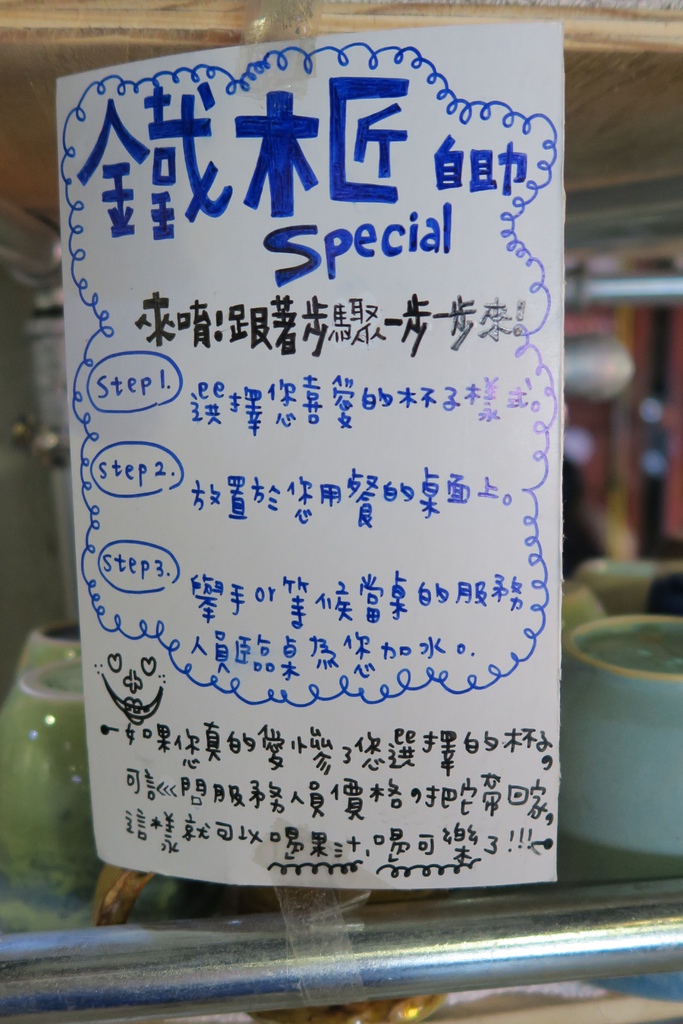 鐵木匠 自助
Special
來唷!跟著步驟一步一步來!
Step 1. 選擇您喜愛的杯子樣式。
Step 2. 放置於您用餐的桌面上。
Step 3. 舉手or等候當桌的服務
人員臨桌為您加水。
如果您真的愛慘了您選擇的杯子,
可以詢問服務人員價格,把它帶回家,
這樣就可以喝果汁,喝可樂了!!!